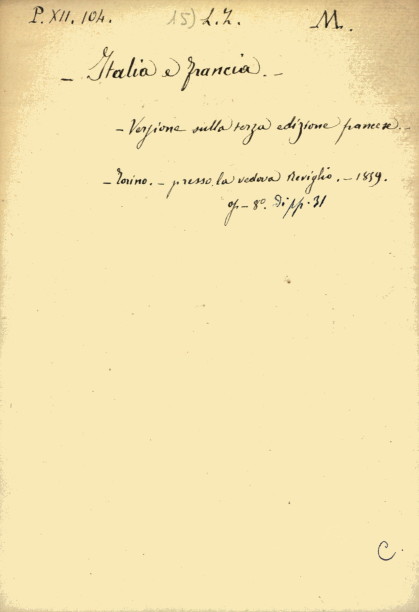 P. XII. 104. 15) L.Z. M.
– Italia e Francia. –
– Versione sulla terza edizione francese. –
– Torino. – presso la vedova Reviglio. – 1859.
op – 8º. di pp. 31
C.